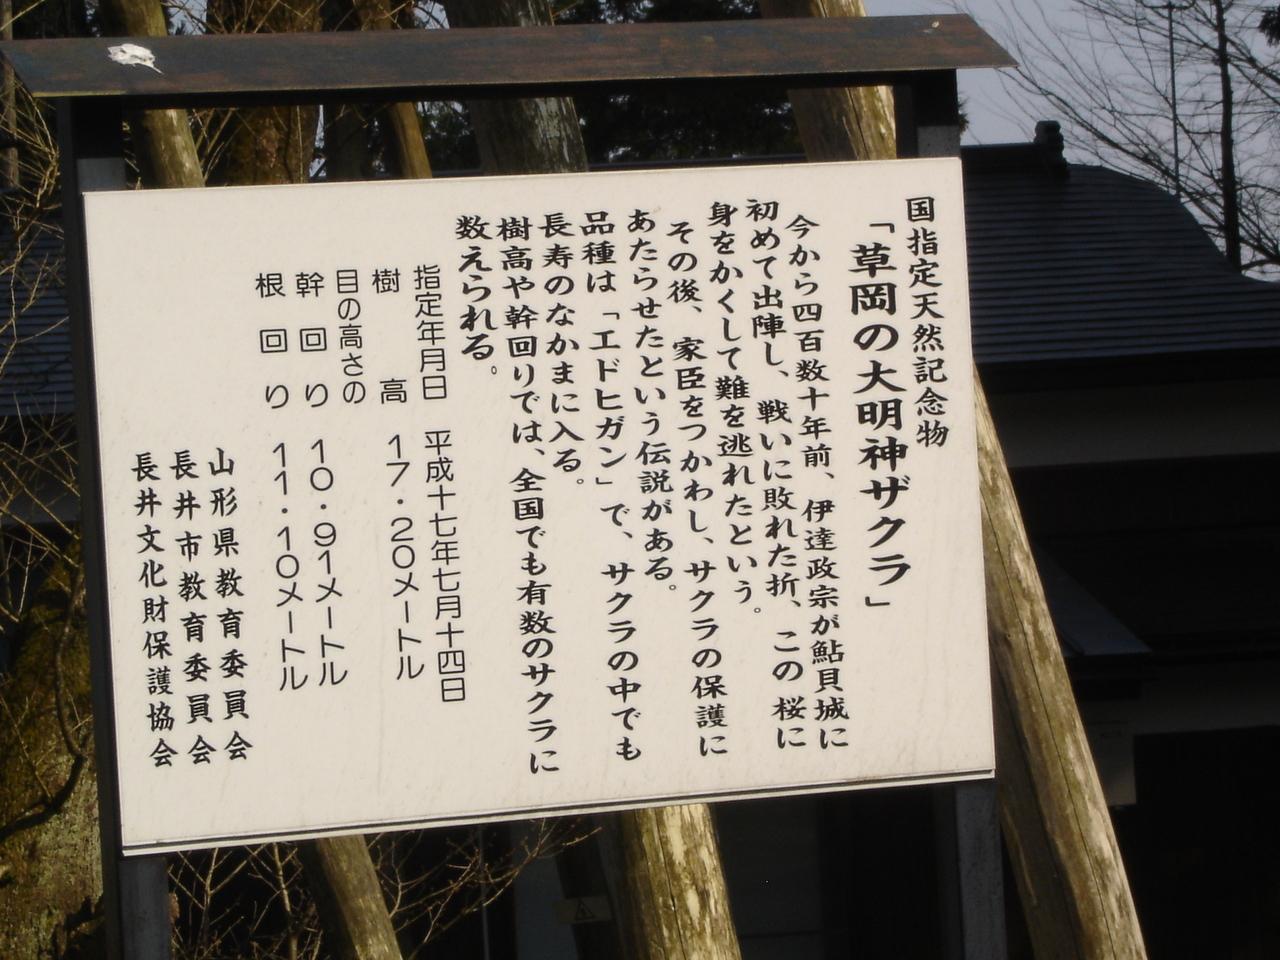 国指定天然記念物
「草岡の大明神ザクラ」
今から四百数十年前、伊達政宗が鮎貝城に
初めて出陣し、戦いに敗れた折、この桜に
身をかくして難を逃れたという。
その後、家臣をつかわし、サクラの保護に
あたらせたという伝説がある。
品種は「エドヒガン」で、サクラの中でも
長寿のなかまに入る。
樹高や幹回りでは、全国でも有数のサクラに
数えられる。
指定年月日 平成十七年七月十四日
樹高 17・20メートル
目の高さの
幹回り 10・91メートル
根回り 11・10メートル
山形県教育委員会
長井市教育委員会
長井文化財保護協会